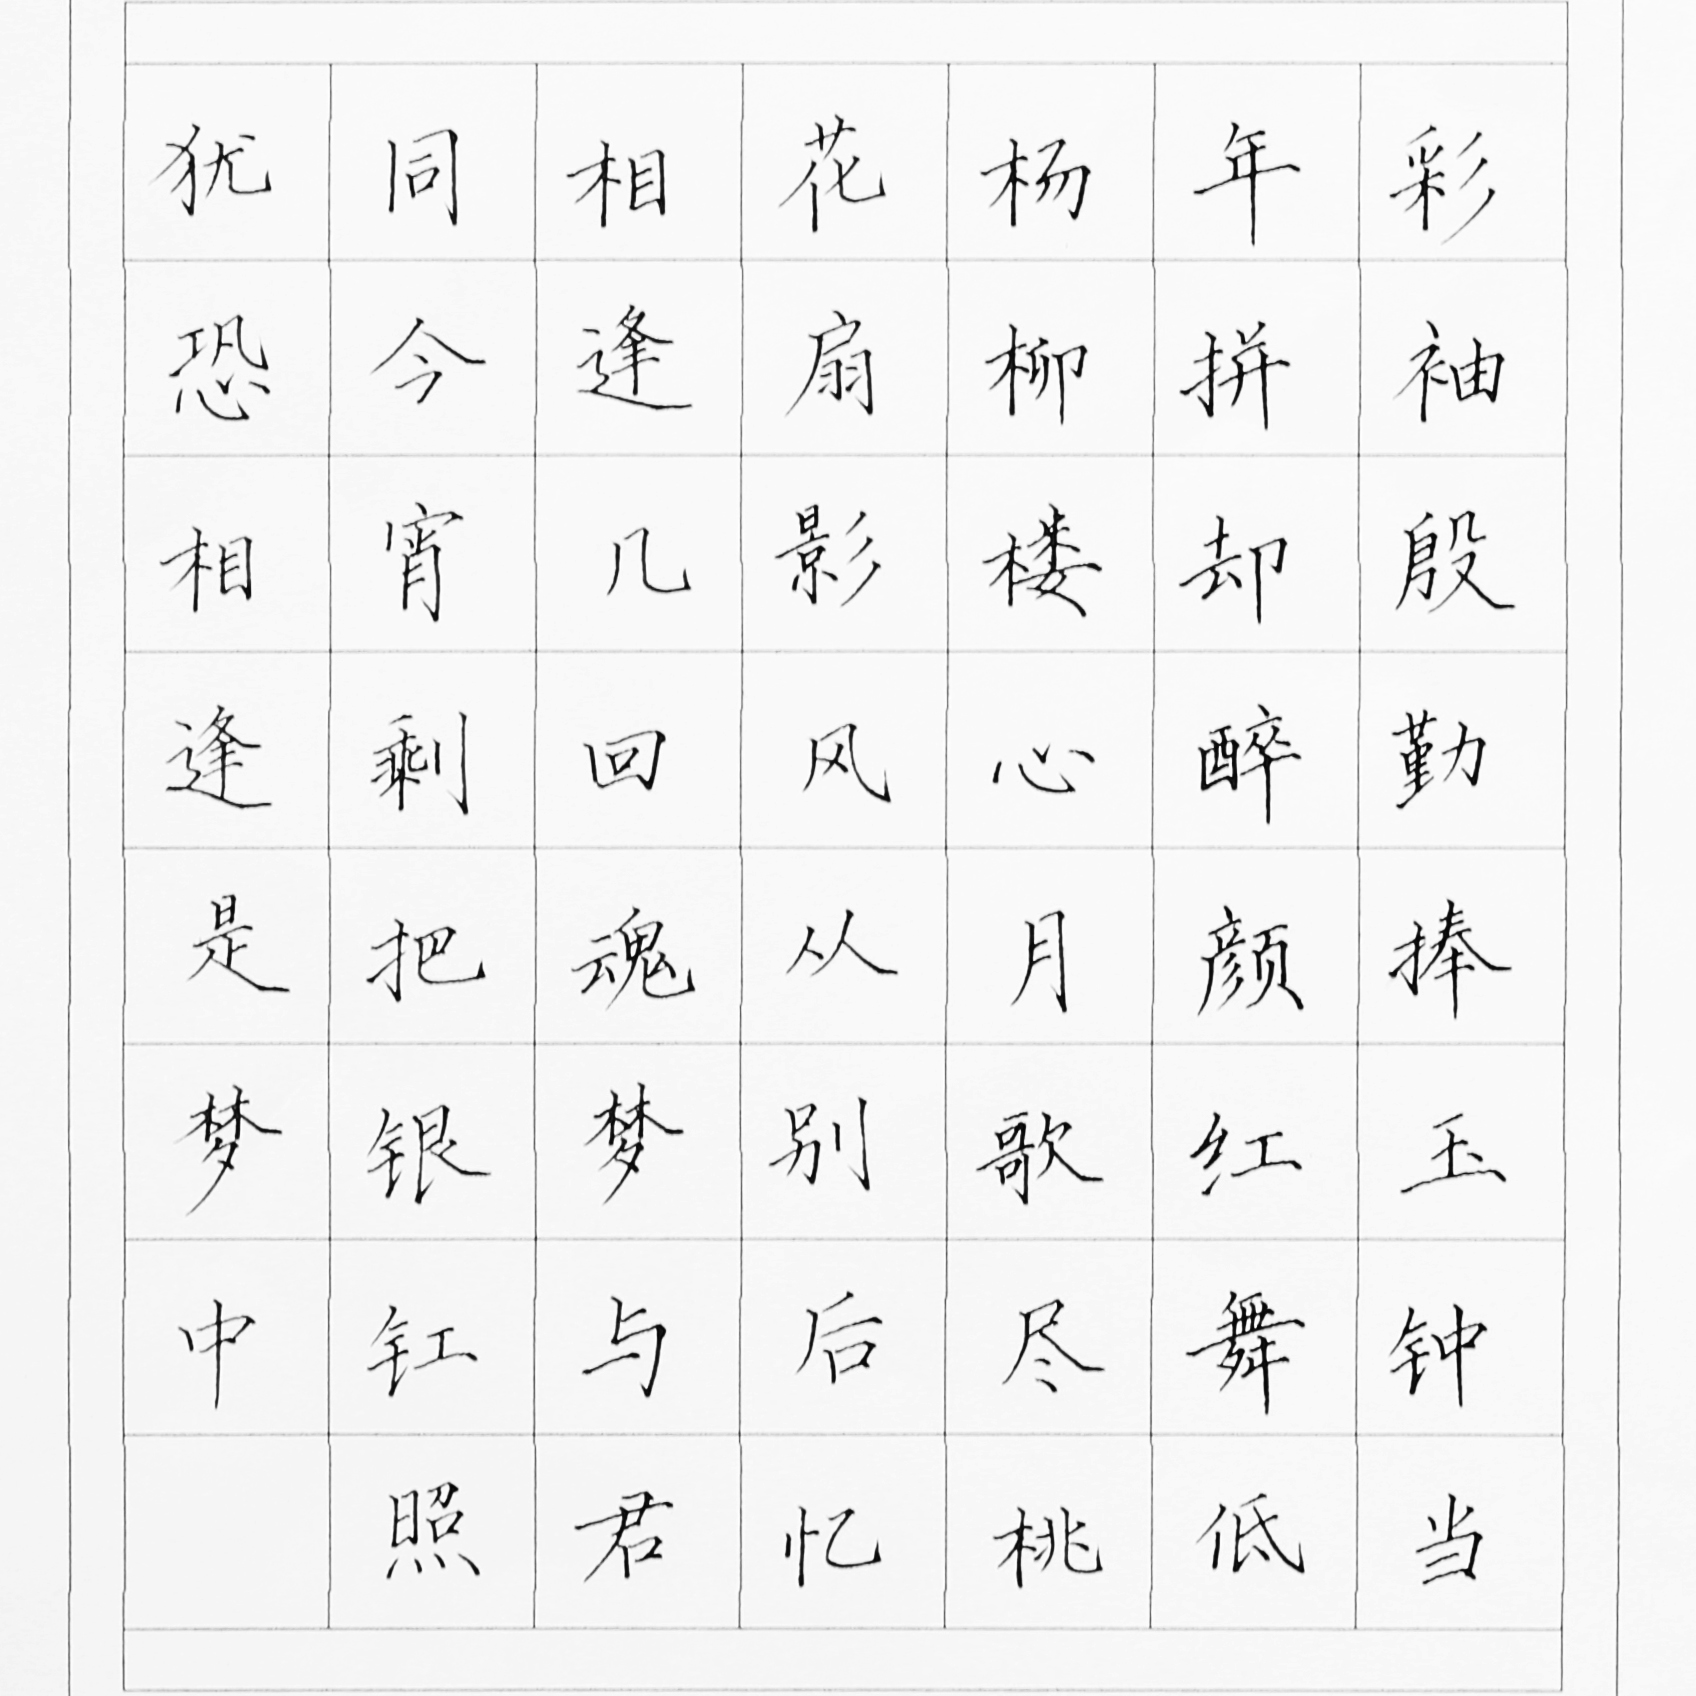 彩袖殷勤捧玉钟当
年拼却醉颜红舞低
杨柳楼心月歌尽桃
花扇影风从别后忆
相逢几回魂梦与君
同今宵剩把银钉照
犹恐相逢是梦中